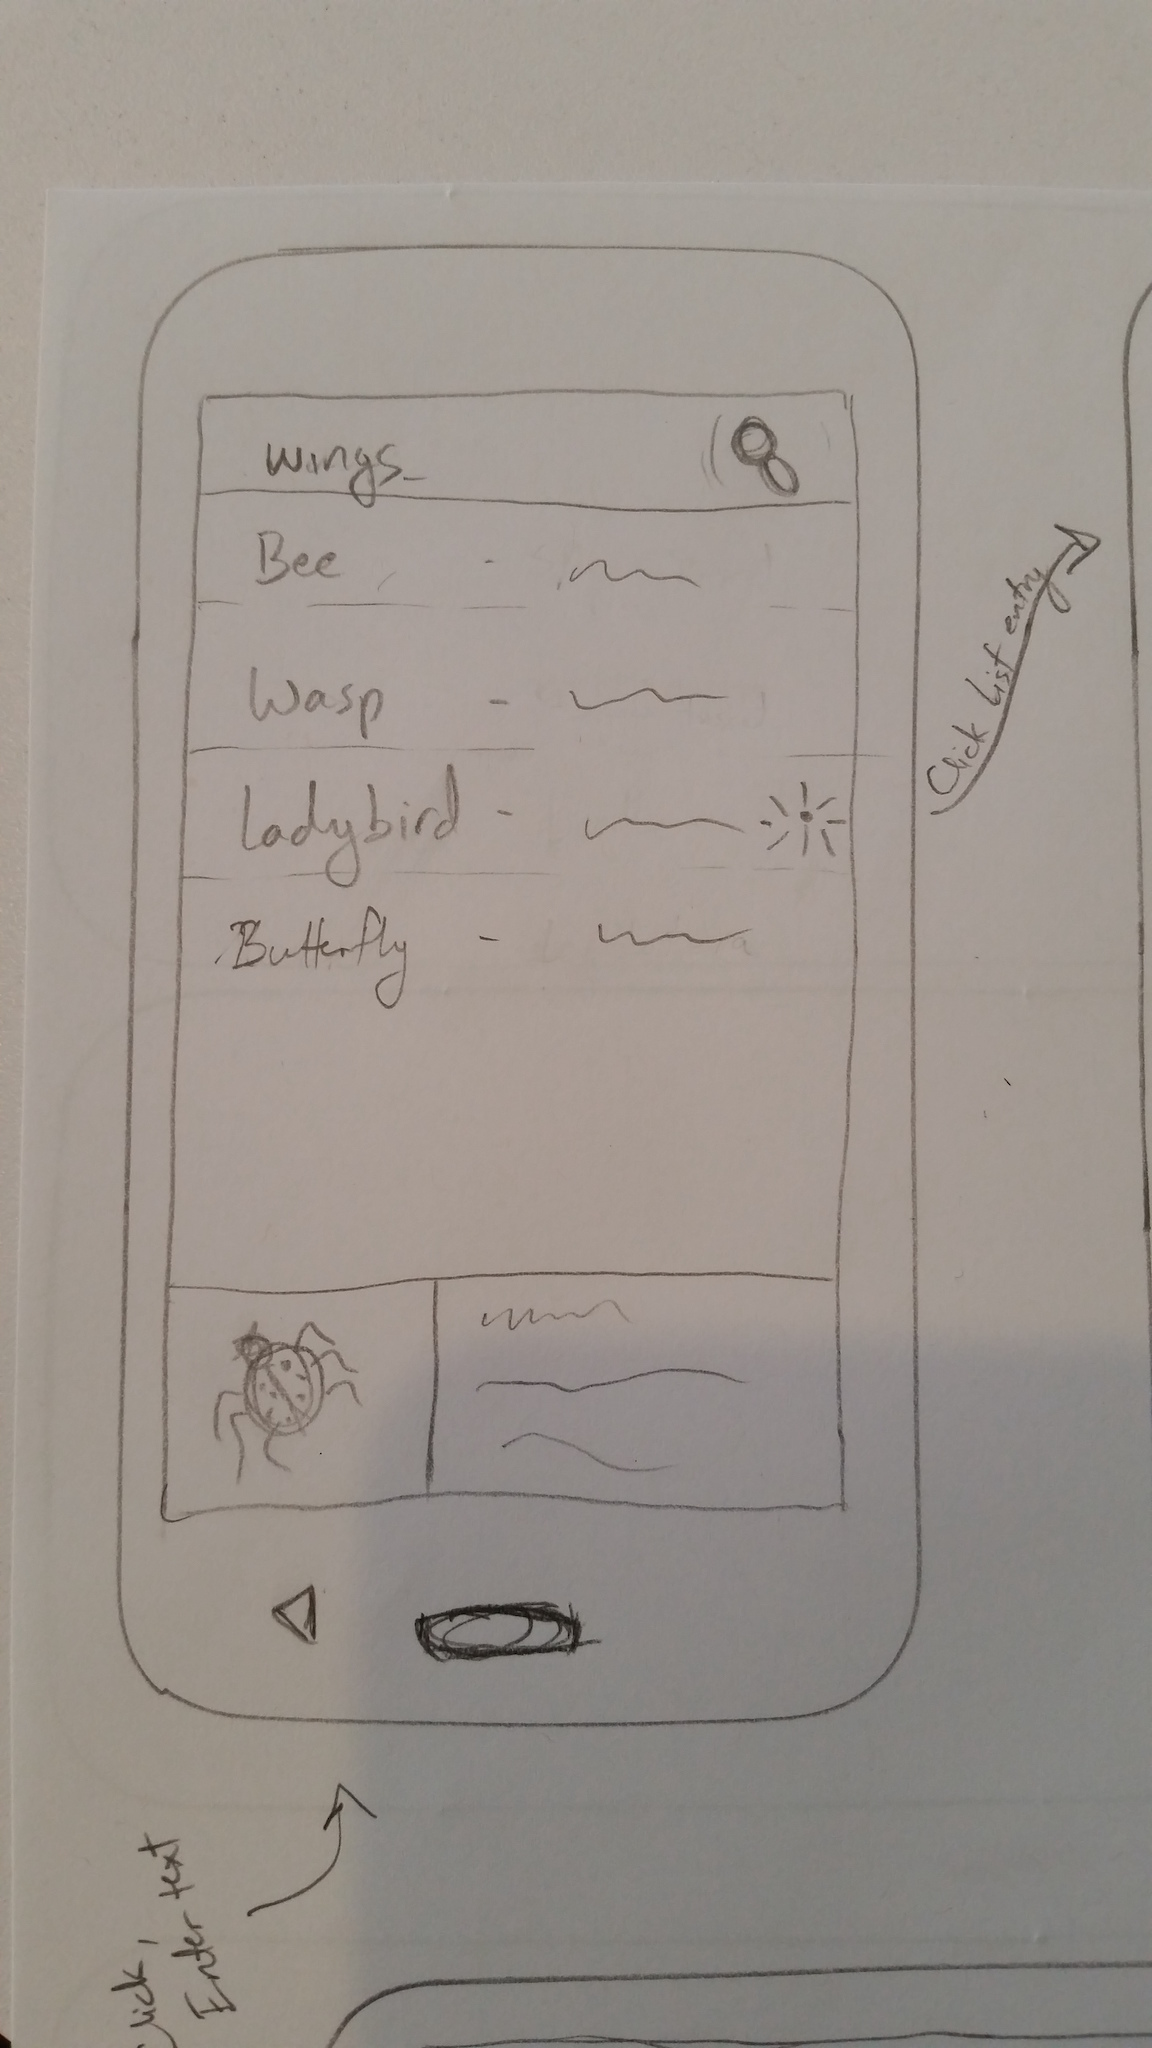 wings_
Bee -
Wasp -
Ladybird -
Butterfly -
Click list entry
Click,
Enter text